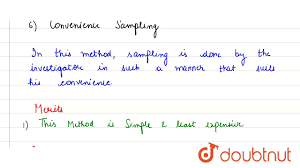 6) Convenience Sampling
In this method, sampling is done by the
investigator in such a manner that suits
his convenience.
Merits
1) This Method is Simple & least expensive
doubtnut